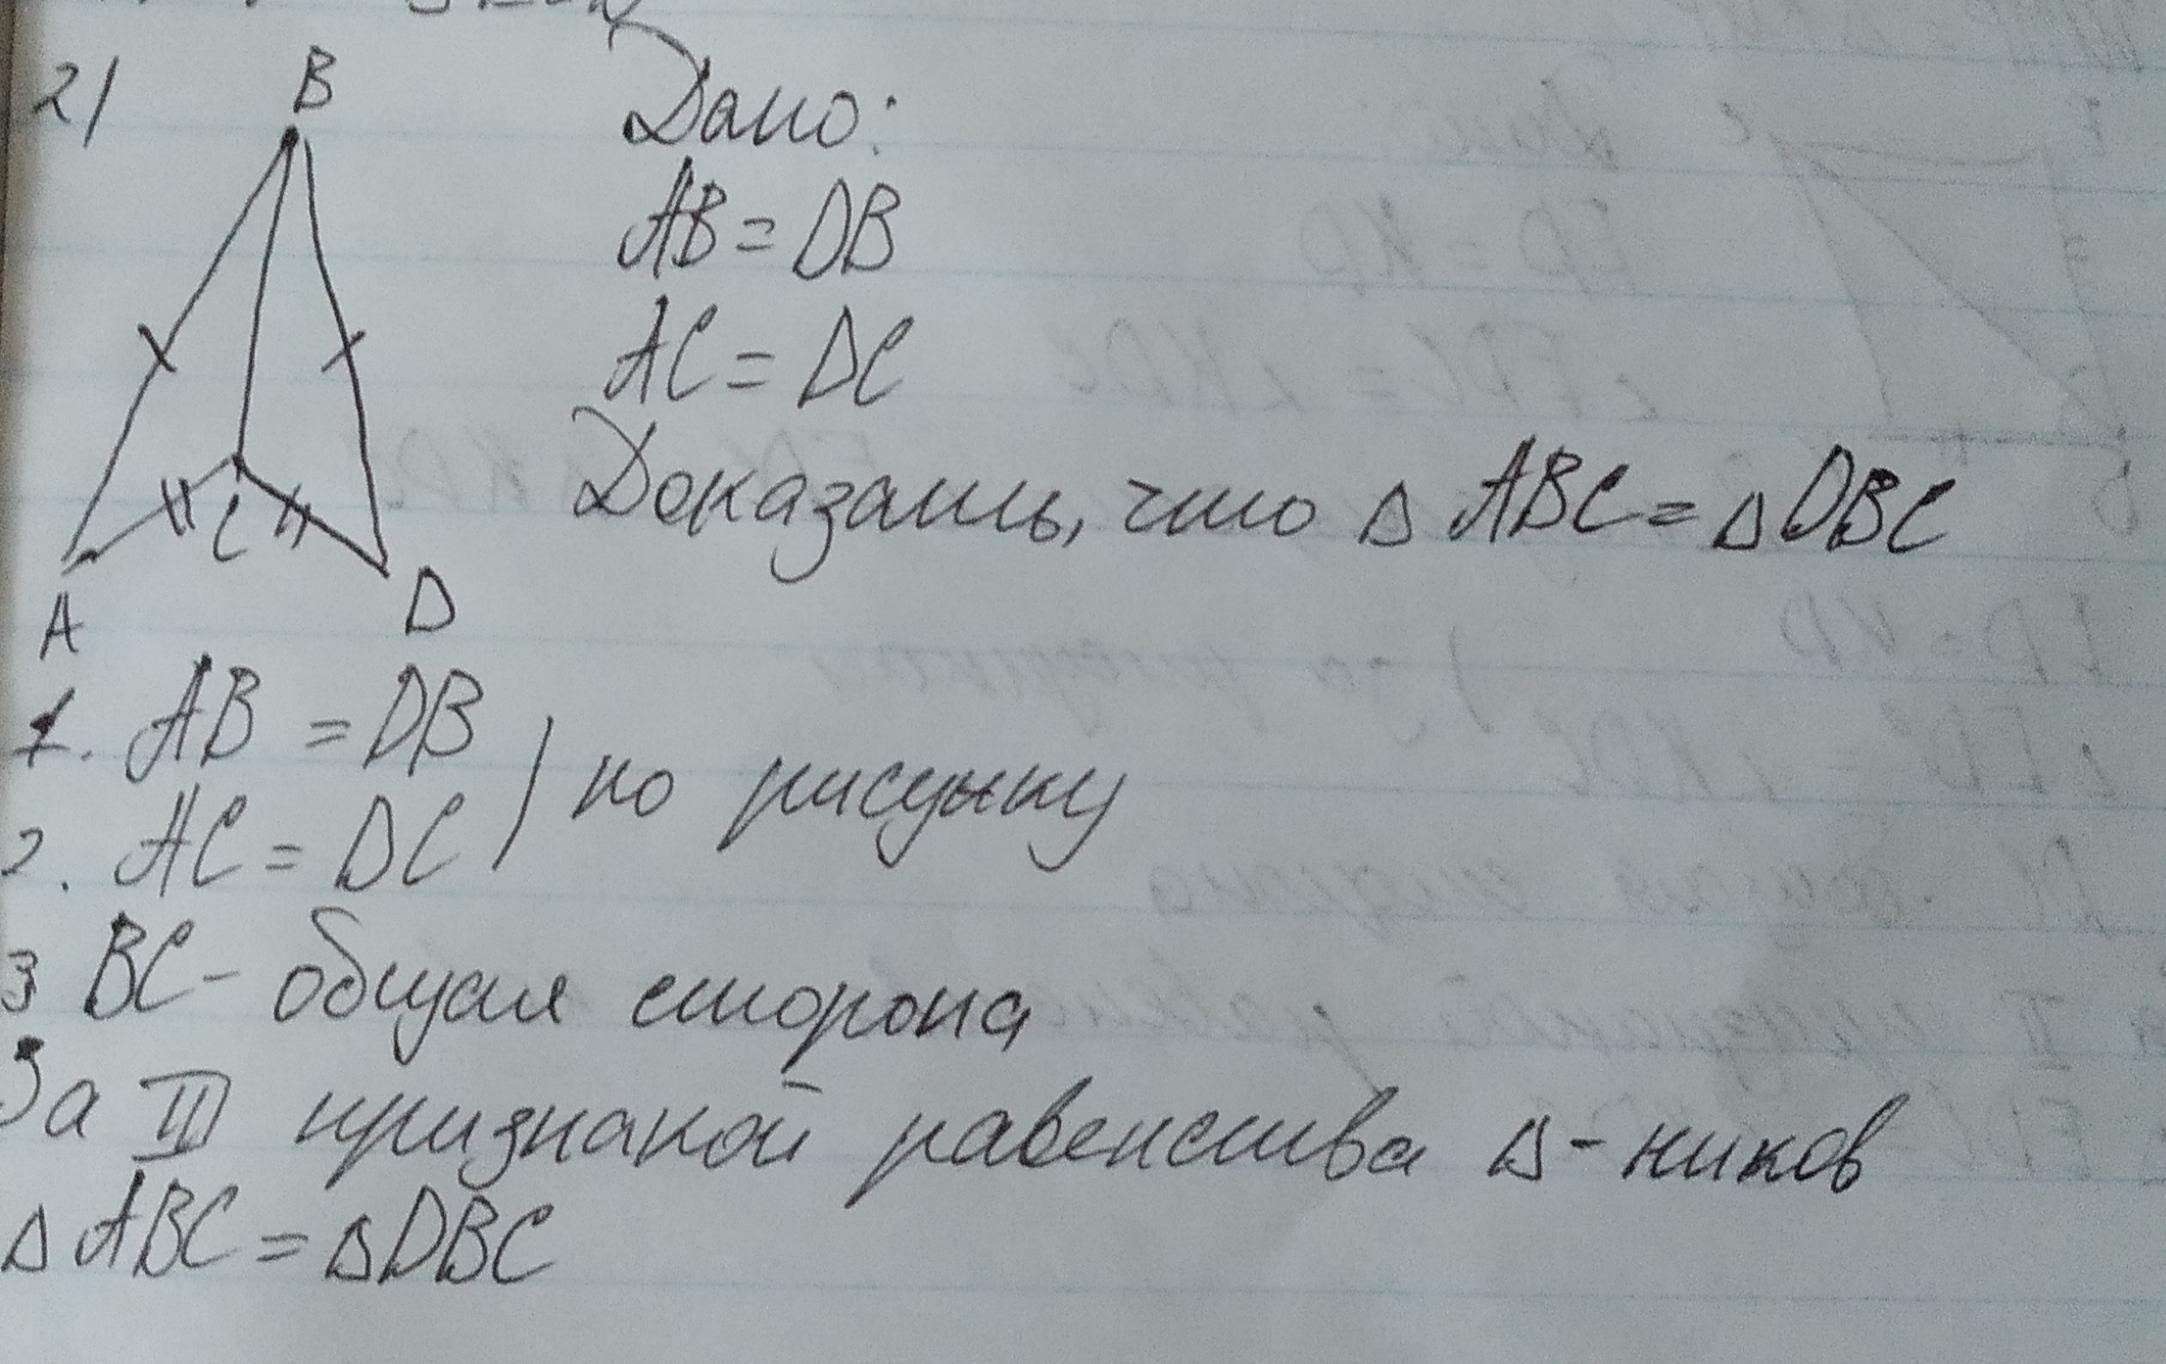 2)
B
Дано:
AB = DB
AC = DC
C
Доказать, что △ ABC = △ DBC
A
D
1. AB = DB
2. AC = DC ) по рисунку
3 BC - общая сторона
За III признакой равенства △-ников
△ ABC = △ DBC